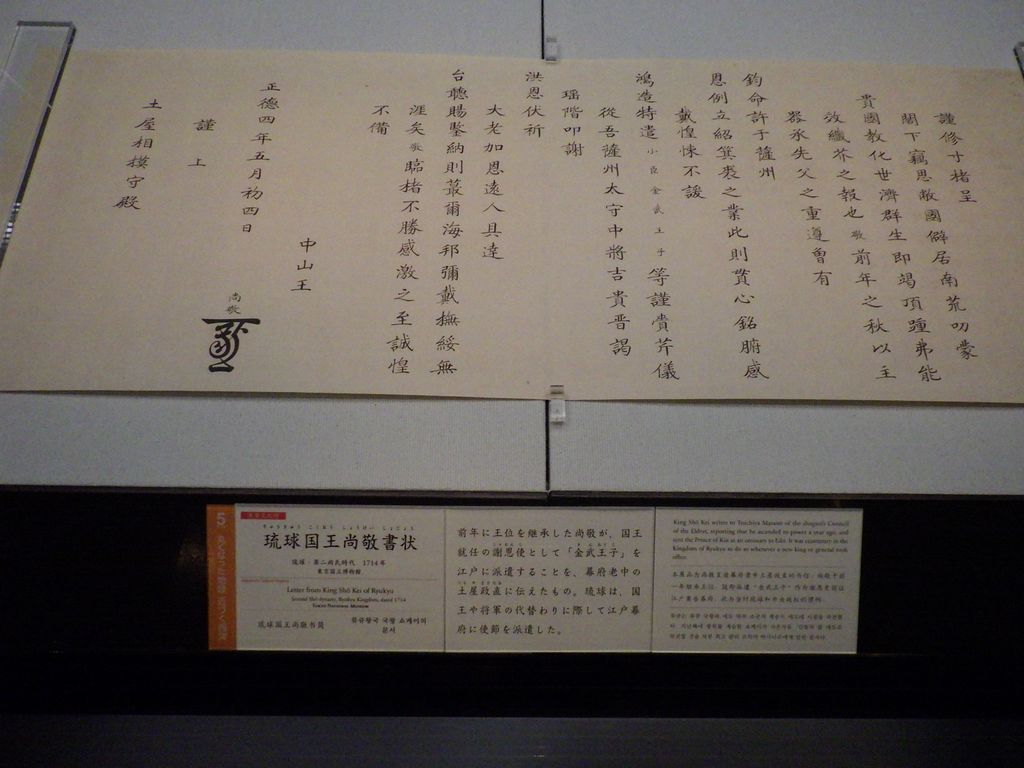 謹修寸楮呈
閣下竊思敝國僻居南荒叨蒙
貴國教化世濟群生即竭頂踵弗能
效纖芥之報也敬前年之秋以主
器承先父之重遵曾有
鈞命許于薩州
恩例立紹箕裘之業此則貫心銘腑感
戴惶悚不諼
鴻造特遣小臣金武王子等謹賫芹儀
從吾薩州太守中將吉貴晋謁
瑶階叩謝
洪恩伏祈
大老加恩遠人具達
台聽賜鑒納則蕞爾海邦彌戴撫綏無
涯矣敬臨楮不勝感激之至誠惶
不備
中山王
尚敬
正德四年五月初四日
謹上
土屋相摸守殿
5
琉球国王尚敬書状
りゅうきゅうこくおうしょうけいしょじょう
琉球・第二尚氏時代 1714年
東京国立博物館
Letter from King Shō Kei of Ryukyu
Second Shō dynasty, Ryukyu Kingdom, dated 1714
Tokyo National Museum
琉球国王尚敬书简
류큐왕국 국왕 쇼케이의
문서
前年に王位を継承した尚敬が、国王
就任の謝恩使として「金武王子」を
江戸に派遣することを、幕府老中の
土屋政直に伝えたもの。琉球は、国
王や将軍の代替わりに際して江戸幕
府に使節を派遣した。
King Shō Kei writes to Tsuchiya Masano of the shogun's Council
of the Elders, reporting that he ascended to power a year ago, and
sent the Prince of Kin as an emissary to Edo. It was customary in the
Kingdom of Ryukyu to do so whenever a new king or general took
office.